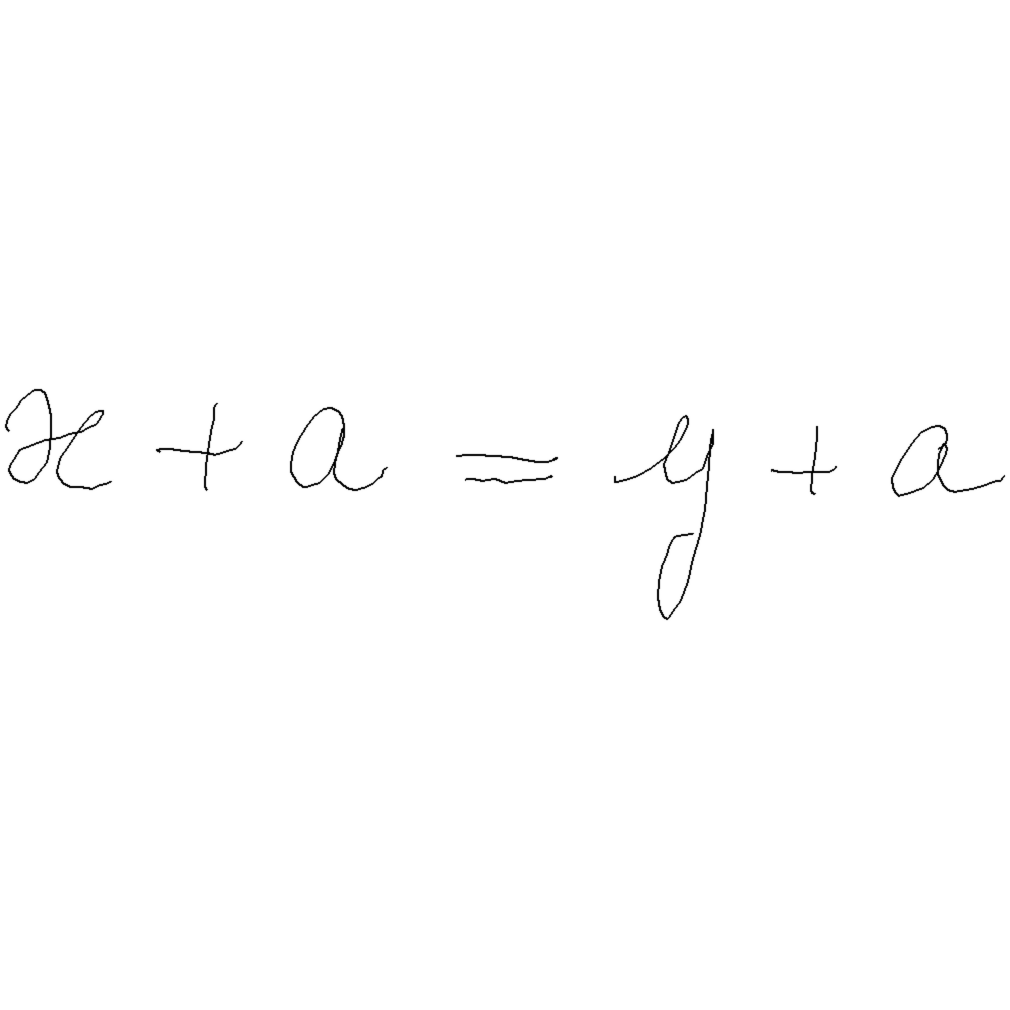 x + a = y + a